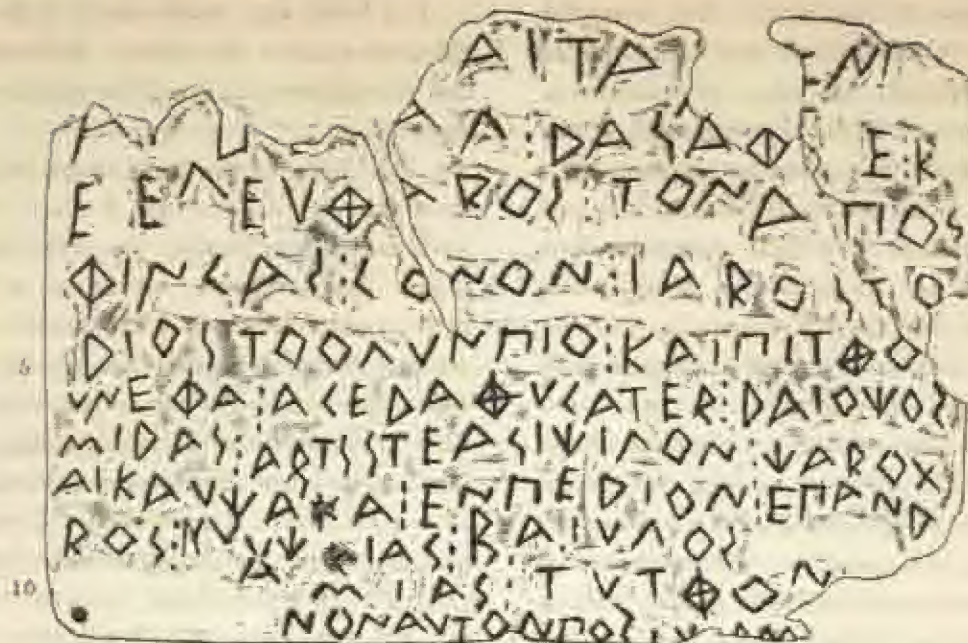 ΑΙΤΑ ΝΙ
Α Λ:ΔΑΣΑΦ Ε:Κ
ΕΕΛΕΥΘ ΑΡΟΣ:ΤΟΝΔ ΠΟΣ
ΦΙΝΓΑΣ:ΓΟΝΟΝΙΑΡΟΣΤΟ
5 ΔΙΟΣΤΟΟΛΥΝΠΙΟ:ΚΑΙΠΙΤΘΟ
ΥΝΕΦΑ:ΑΓΕΔΑΘΥΓΑΤΕΡ:ΔΑΙΟΨΟΣ
ΜΙΔΑΣ:ΑΡΤΣΣΤΕΑΣΙΨΙΛΟΝ:ΨΑΡΟΧ
ΑΙΚΑΥΨΑΚΑ:ΕΝΠΕΔΙΟΝ:ΕΠΑΝΔ
ΡΟΣ: ΙΑΣ:ΒΑΙΥΛΟΣ
10 ΜΙΑΣ:ΤΥΤΘΟΝ
ΝΟΝΑΥΤΟΝΠΟΣ